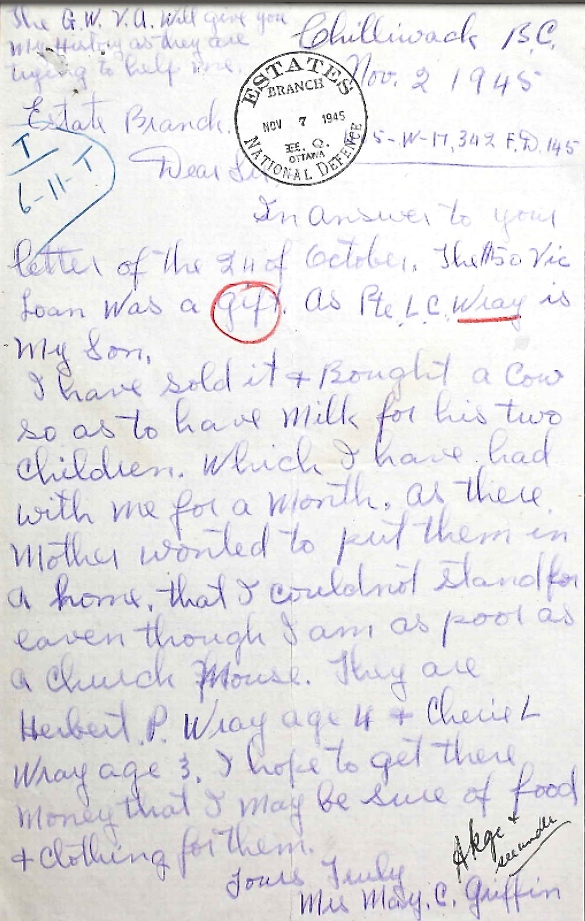 The G.W.V.A. Will give you
My History as they are
trying to help me.
Chilliwack B.C.
Nov. 2 1945
ESTATES
BRANCH
NOV 7 1945
OTTAWA
NATIONAL DEFENCE
Estate Branch.
5-W-17,342 F.D. 145
T
6-11-T
Dear Sir
In answer to your
letter of the 24 of October. The $50 Vic
Loan was a gift. as Pte L.C. Wray is
My Son.
I have sold it + Bought a Cow
so as to have Milk for his two
Children. Which I have had
with me for a Month. as there
Mother wonted to put them in
a home. that I couldnot stand for
eaven though I am as poor as
a Church Mouse. They are
Herbert P. Wray age 4 + Cherie L
Wray age 3. I hope to get there
Money that I may be sure of food
+ clothing for them.
Yours Truly
Mrs May. C. Griffin